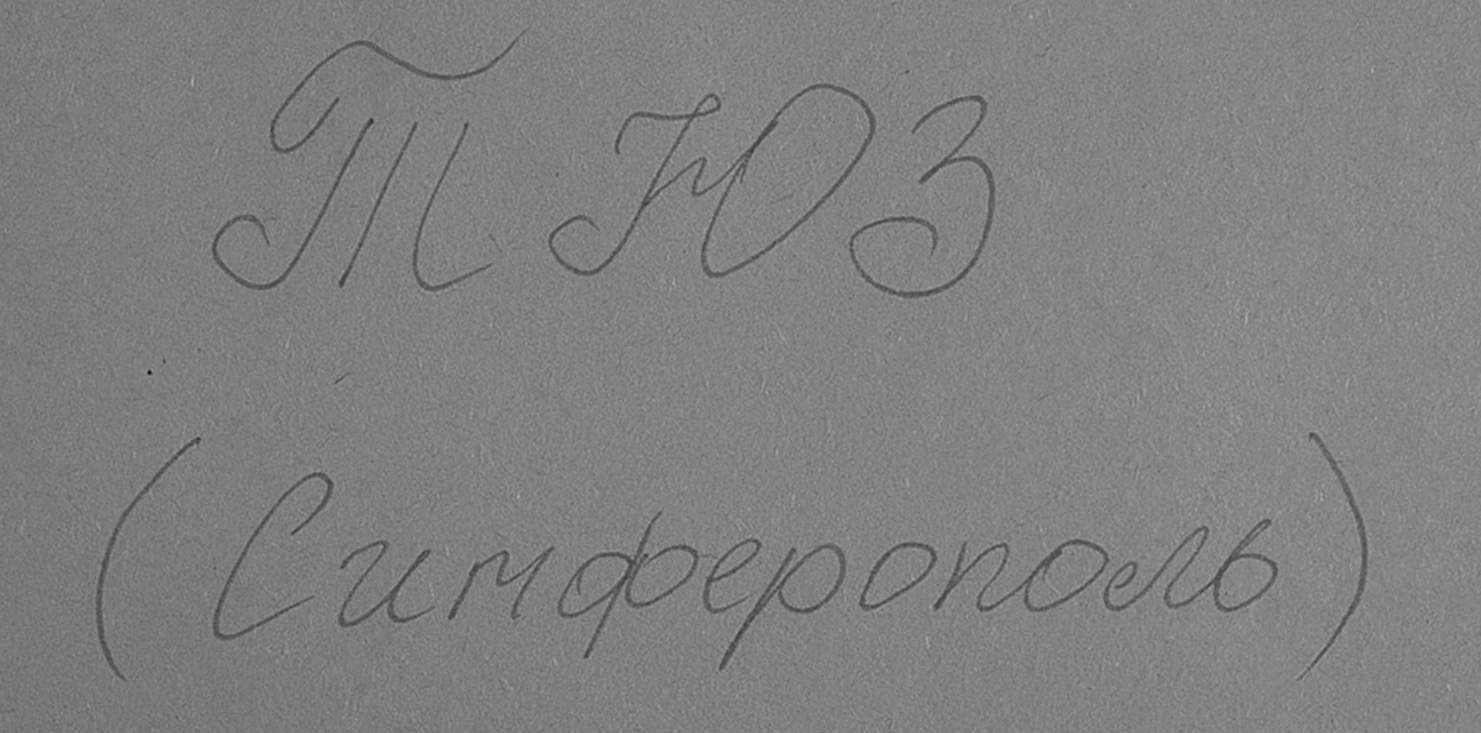 ТЮЗ
(Симферополь)